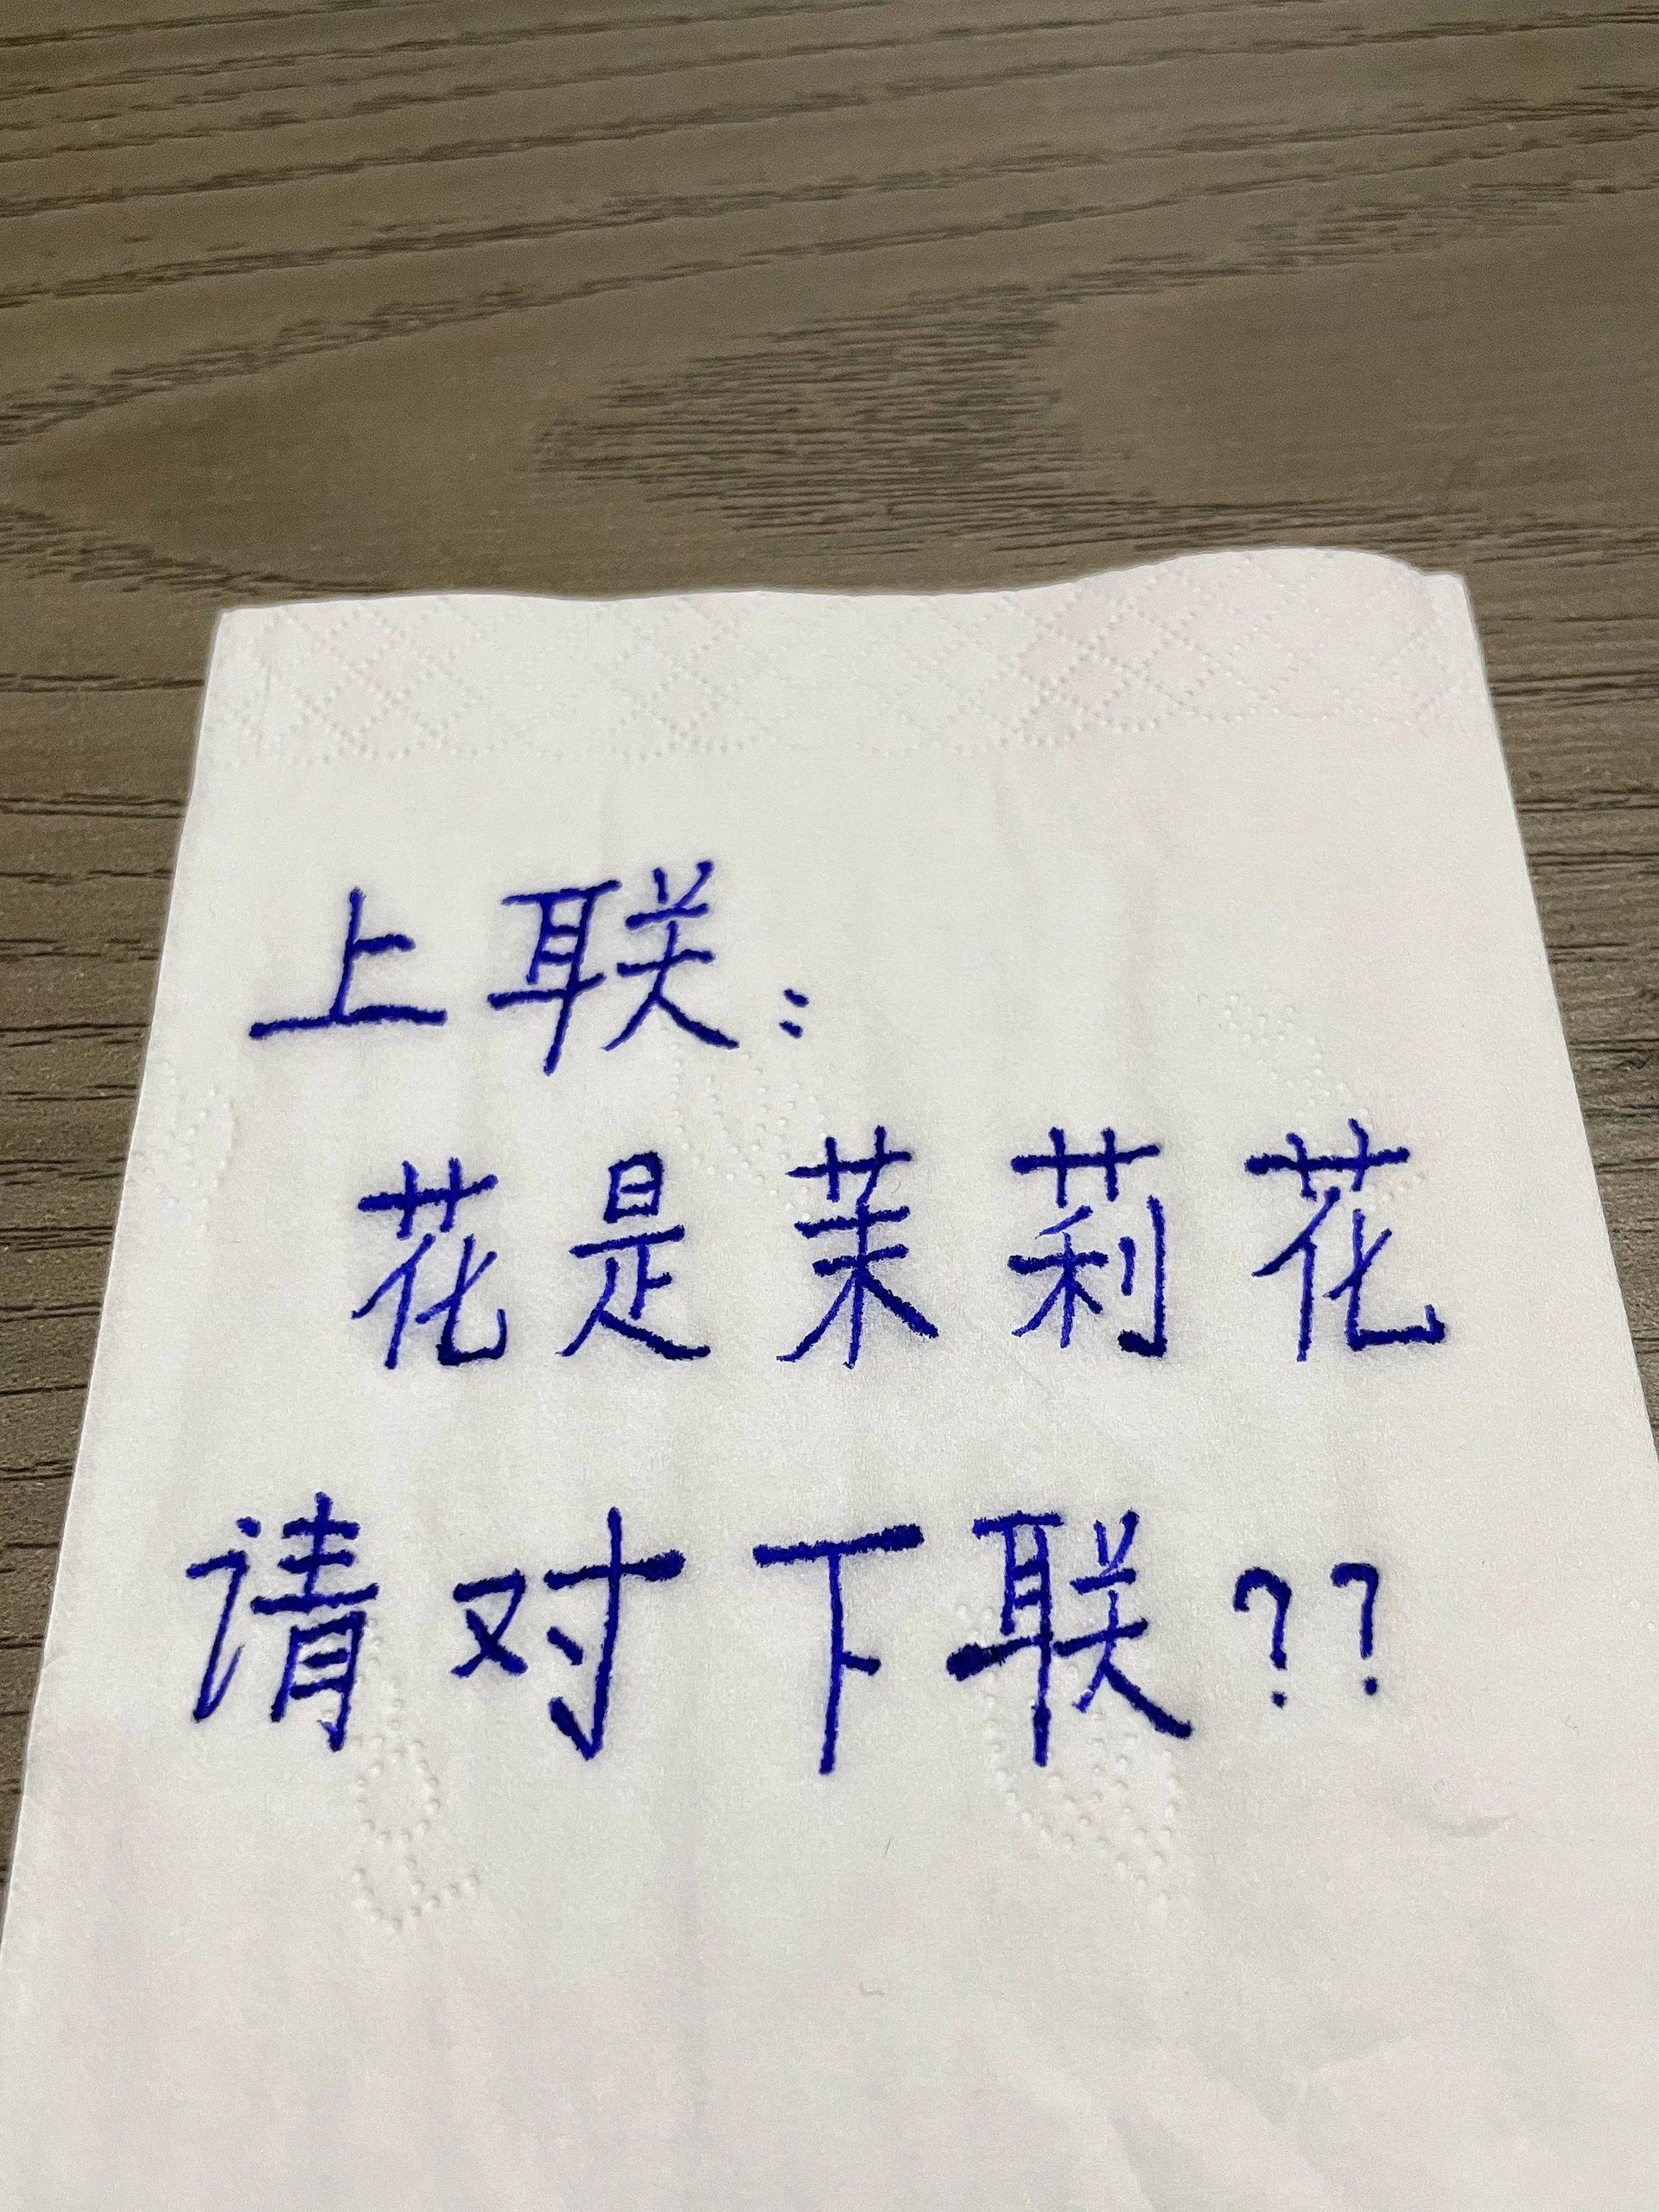 上联：
花是茉莉花
请对下联??